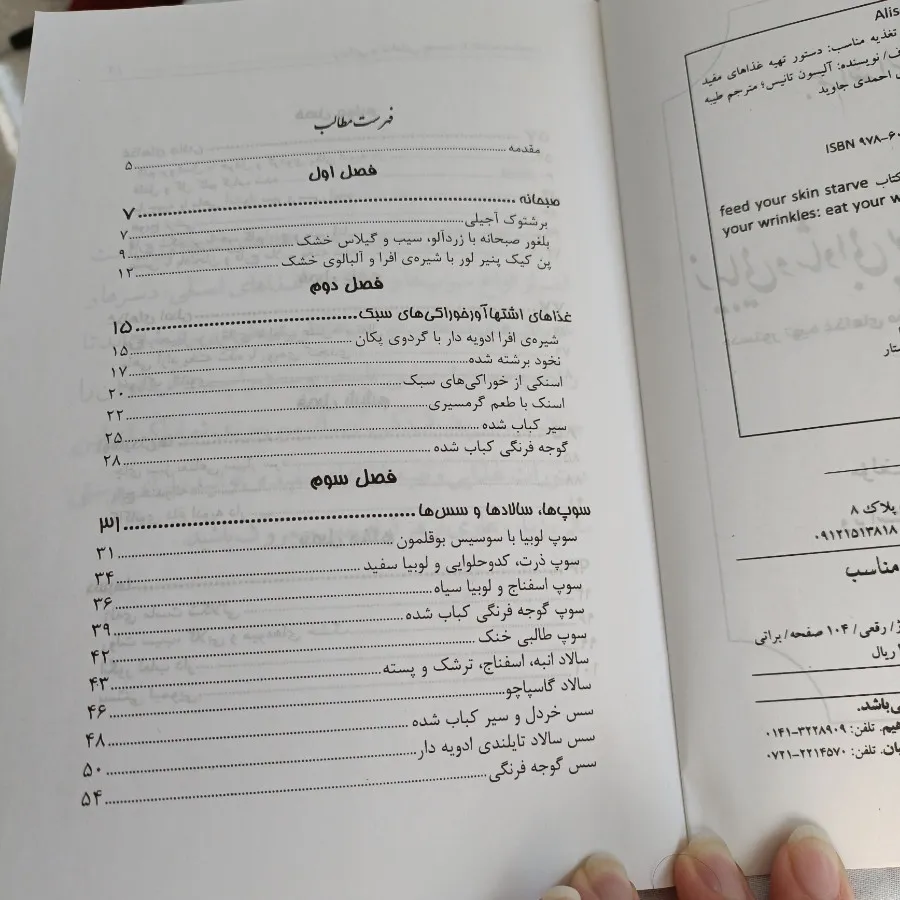 فهرست مطالب
مقدمه ........ ۵
فصل اول
صبحانه ........ ۷
برشتوک آجیلی ........ ۷
بلغور صبحانه با زردآلو، سیب و گیلاس خشک ........ ۹
پن کیک پنیر لور با شیره‌ی افرا و آلبالوی خشک ........ ۱۲
فصل دوم
غذاهای اشتهاآورخوراکی‌های سبک ........ ۱۵
شیره‌ی افرا ادویه دار با گردوی پکان ........ ۱۵
نخود برشته شده ........ ۱۷
اسنکی از خوراکی‌های سبک ........ ۲۰
اسنک با طعم گرمسیری ........ ۲۲
سیر کباب شده ........ ۲۵
گوجه فرنگی کباب شده ........ ۲۸
فصل سوم
سوپ‌ها، سالادها و سس‌ها ........ ۳۱
سوپ لوبیا با سوسیس بوقلمون ........ ۳۱
سوپ ذرت، کدوحلوایی و لوبیا سفید ........ ۳۴
سوپ اسفناج و لوبیا سیاه ........ ۳۶
سوپ گوجه فرنگی کباب شده ........ ۳۹
سوپ طالبی خنک ........ ۴۲
سالاد انبه، اسفناج، ترشک و پسته ........ ۴۳
سالاد گاسپاچو ........ ۴۶
سس خردل و سیر کباب شده ........ ۴۸
سس سالاد تایلندی ادویه دار ........ ۵۰
سس گوجه فرنگی ........ ۵۴
Alis
تغذیه مناسب: دستور تهیه غذاهای مفید
نویسنده: آلیسون تانیس؛ مترجم طیبه
احمدی جاوید
ISBN ۹۷۸-۶۰
کتاب feed your skin starve
your wrinkles: eat your w
پلاک ۸
۰۹۱۲۱۵۱۳۸۱۸
مناسب
رقعی/ ۱۰۴ صفحه/ براتی
ریال
تلفن: ۳۲۲۸۹۰۹-۰۱۴۱
تلفن: ۲۲۱۴۵۷۰-۰۷۲۱